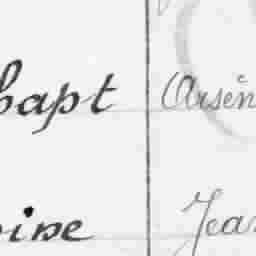 bapt Arsèn
oine Jean